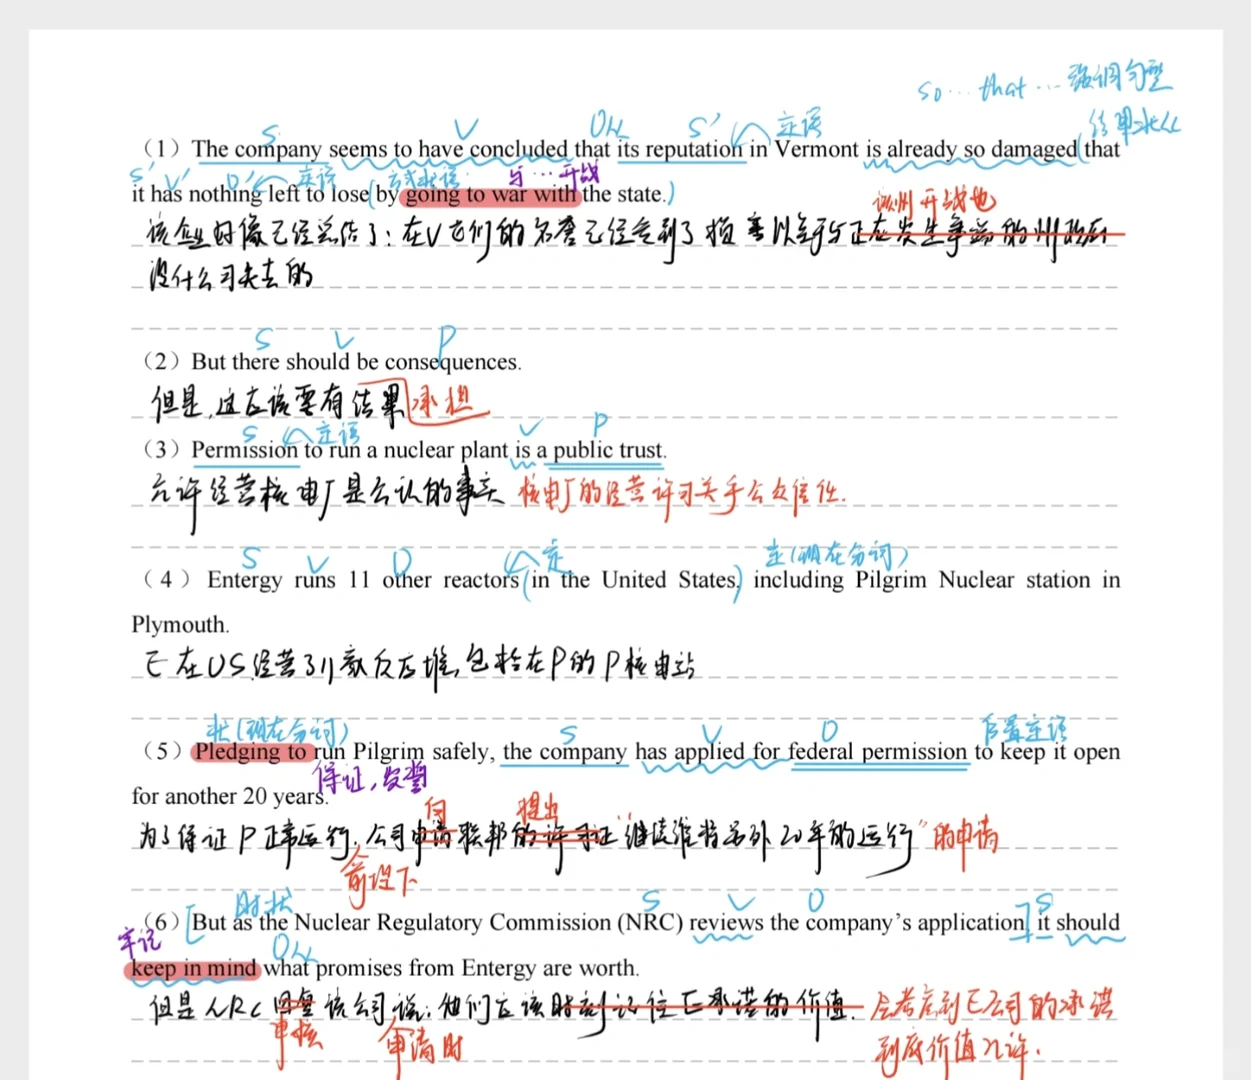 so … that … 强调句型
结果状从
S V O从 S' 定语
(1) The company seems to have concluded that its reputation in Vermont is already so damaged (that
S' V' O' 定语 方式状语 与…开战
it has nothing left to lose (by going to war with the state.)
该州开战也
该企业好像已经总结了:在V它们的名誉已经受到了损害以至于与正在发生争端的州
没什么可失去的
S V P
(2) But there should be consequences.
但是,这应该要有结果 承担
S 定语 V P
(3) Permission to run a nuclear plant is a public trust.
允许经营核电厂是公认的事实 核电厂的经营许可关乎公众信任.
S V O 定 定(现在分词)
(4) Entergy runs 11 other reactors (in the United States,) including Pilgrim Nuclear station in
Plymouth.
E 在US经营了11家反应堆,包括在P的P核电站
状(现在分词) S V O 后置定语
(5) Pledging to run Pilgrim safely, the company has applied for federal permission to keep it open
保证,发誓
for another 20 years.
向 提出
为了保证P正常运行,公司申请联邦的许可证“继续维持另外20年的运行”的申请
前提下
时状 S V O S
(6) [But as the Nuclear Regulatory Commission (NRC) reviews the company's application,] it should
牢记 O从
keep in mind what promises from Entergy are worth.
但是NRC 该公司说:他们应该时刻记住E承诺的价值. 会考虑到E公司的承诺
审核 申请时 到底价值几许.